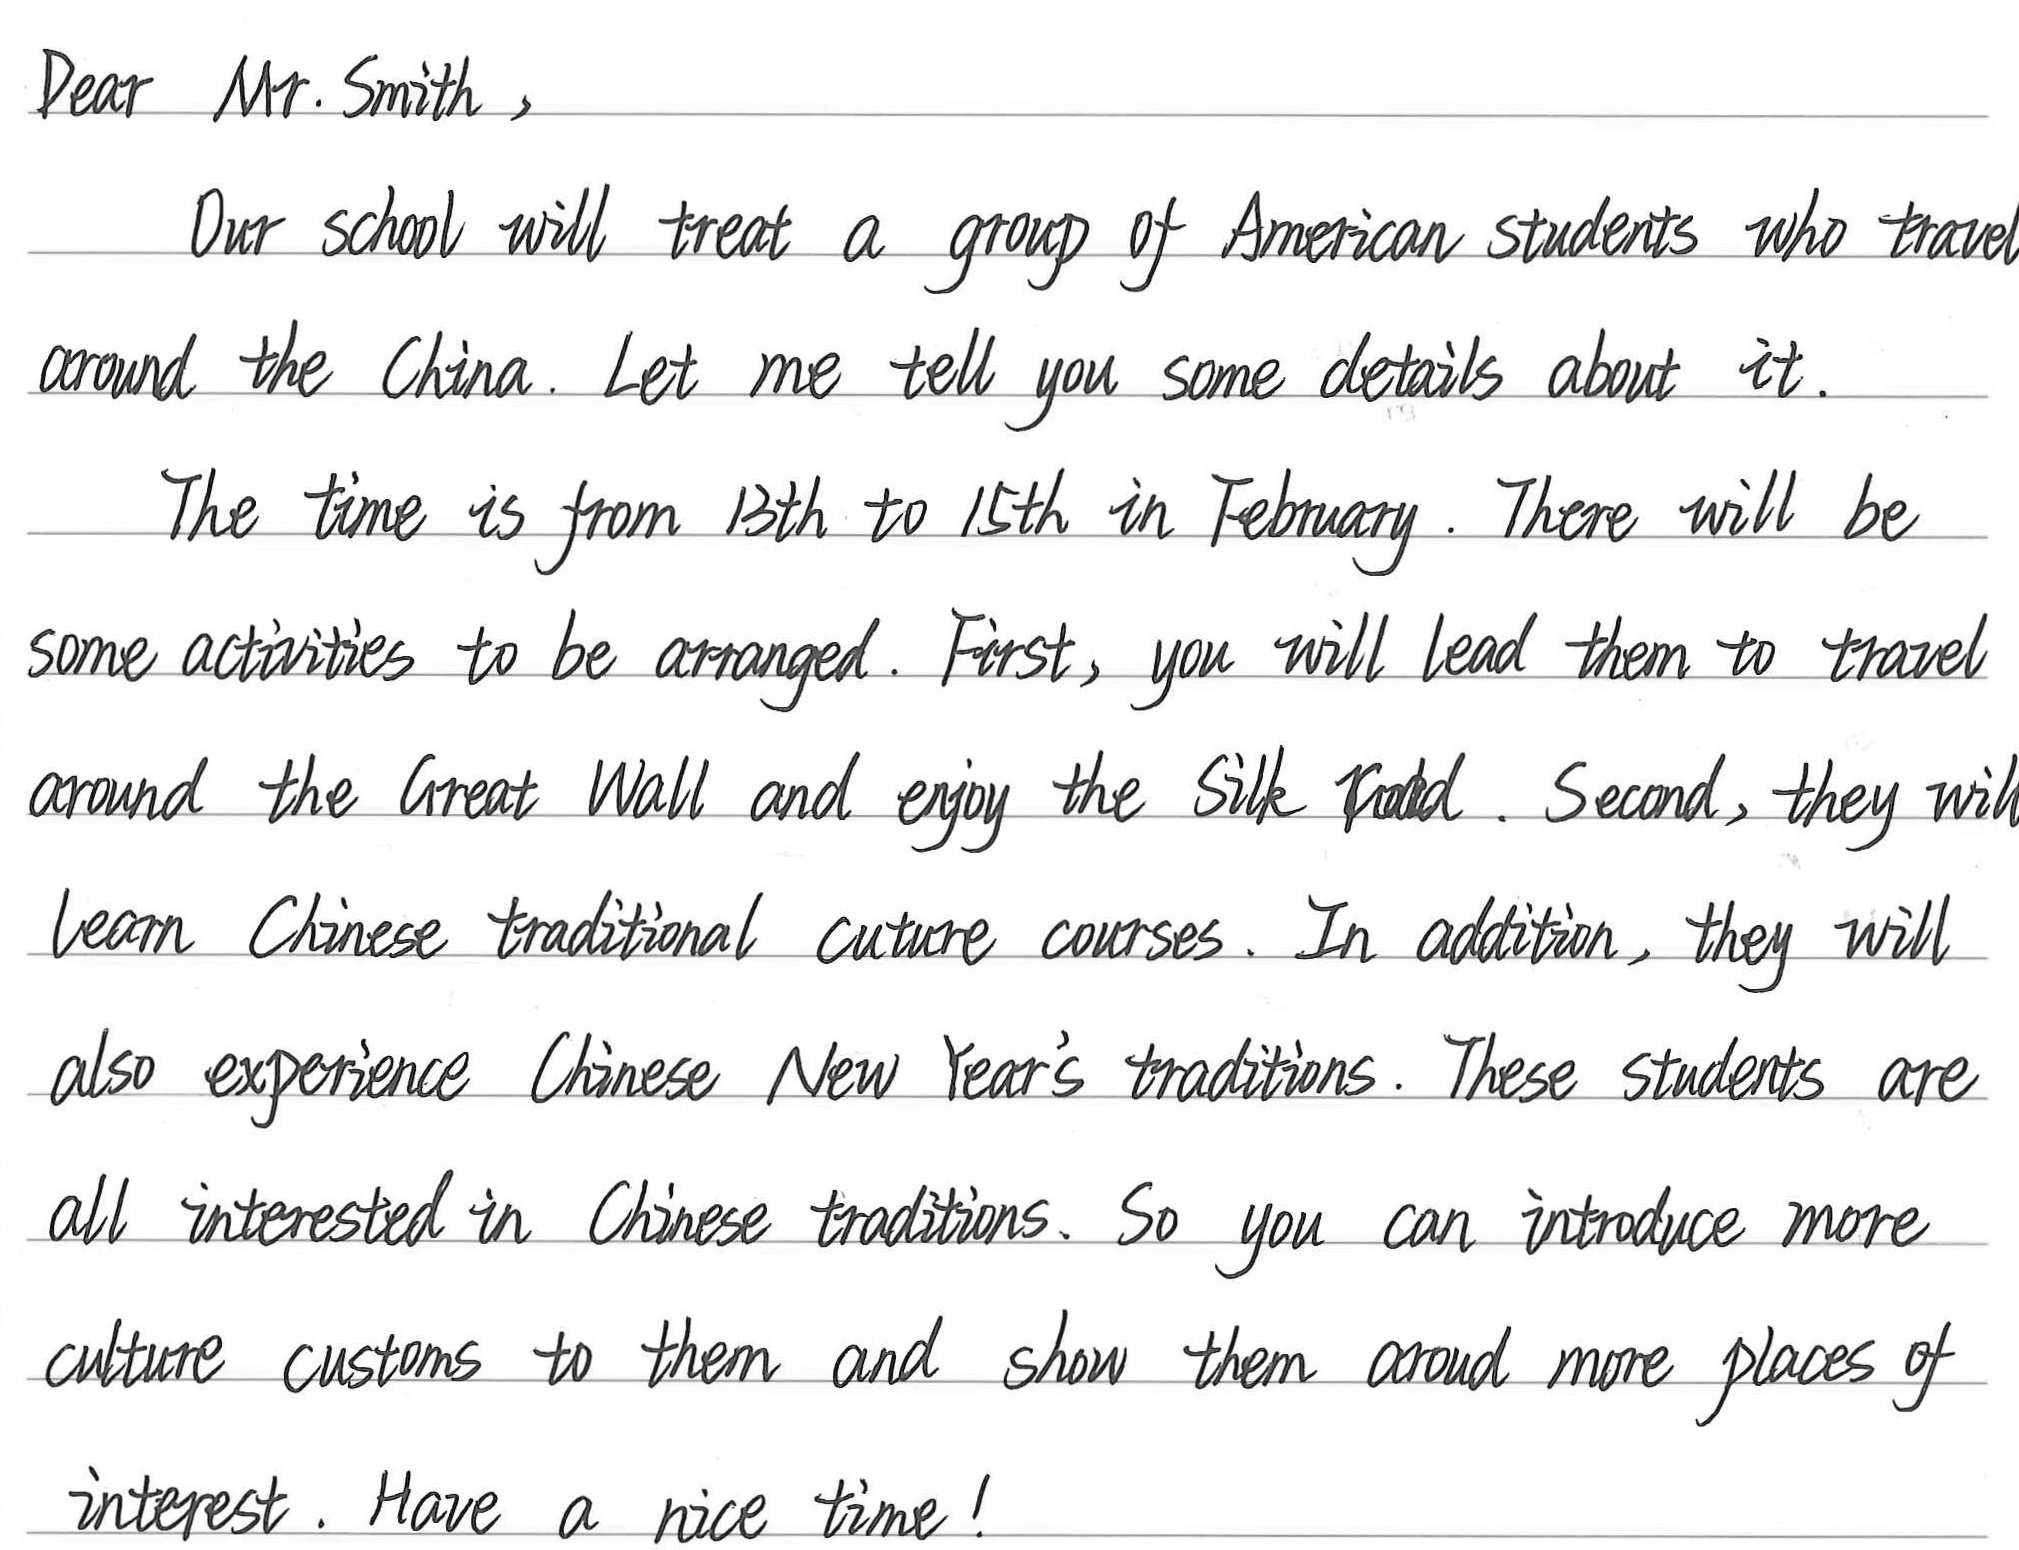 Dear Mr. Smith,
Our school will treat a group of American students who travel
around the China. Let me tell you some details about it.
The time is from 13th to 15th in February. There will be
some activities to be arranged. First, you will lead them to travel
around the Great Wall and enjoy the Silk Road. Second, they will
learn Chinese traditional cuture courses. In addition, they will
also experience Chinese New Year's traditions. These students are
all interested in Chinese traditions. So you can introduce more
culture customs to them and show them aroud more places of
interest. Have a nice time!